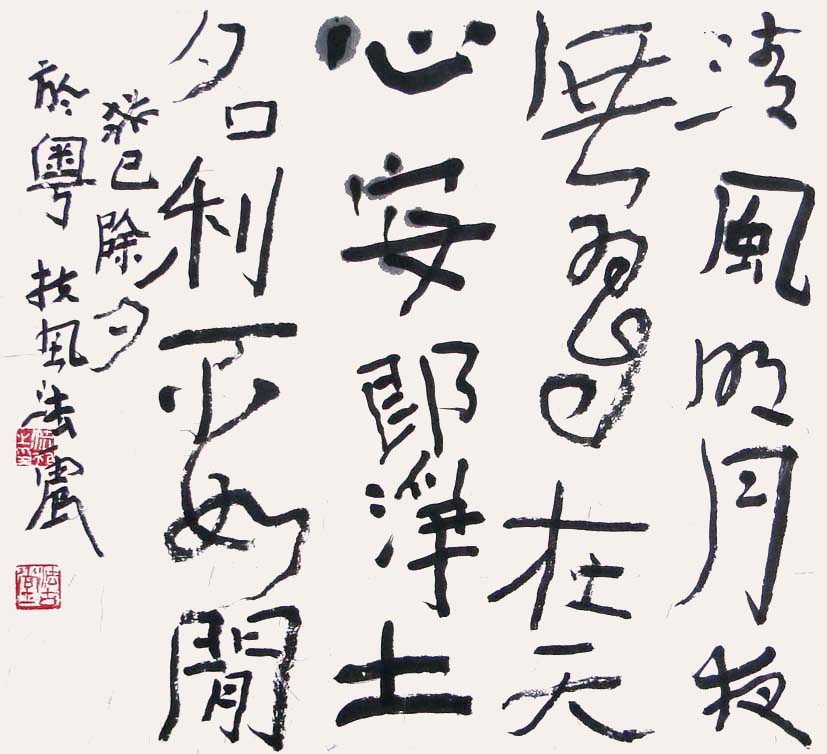 清風明月夜
無在天
心安即淨土
名利不如閒
癸巳除夕
於粵 扶風法